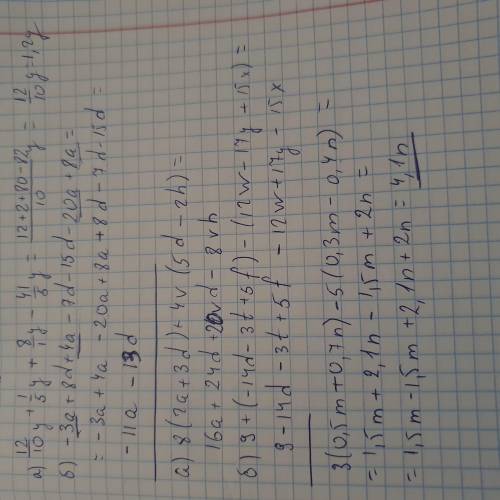 а) 12/10 y + 1/5 y + 8/1 y - 41/5 y = 12+2+80-82/10 y = 12/10 y = 1,2y
б) -3a + 8d + 4a - 7d - 15d - 20a + 8a =
= -3a + 4a - 20a + 8a + 8d - 7d - 15d =
-11a - 13d
а) 8(2a + 3d) + 4v(5d - 2h) =
16a + 24d + 20vd - 8vh
б) 9 + (-14d - 3t + 5f) - (12w - 17y + 15x) =
9 - 14d - 3t + 5f - 12w + 17y - 15x
3(0,5m + 0,7n) - 5(0,3m - 0,4n) =
= 1,5m + 2,1n - 1,5m + 2n =
= 1,5m - 1,5m + 2,1n + 2n = 4,1n